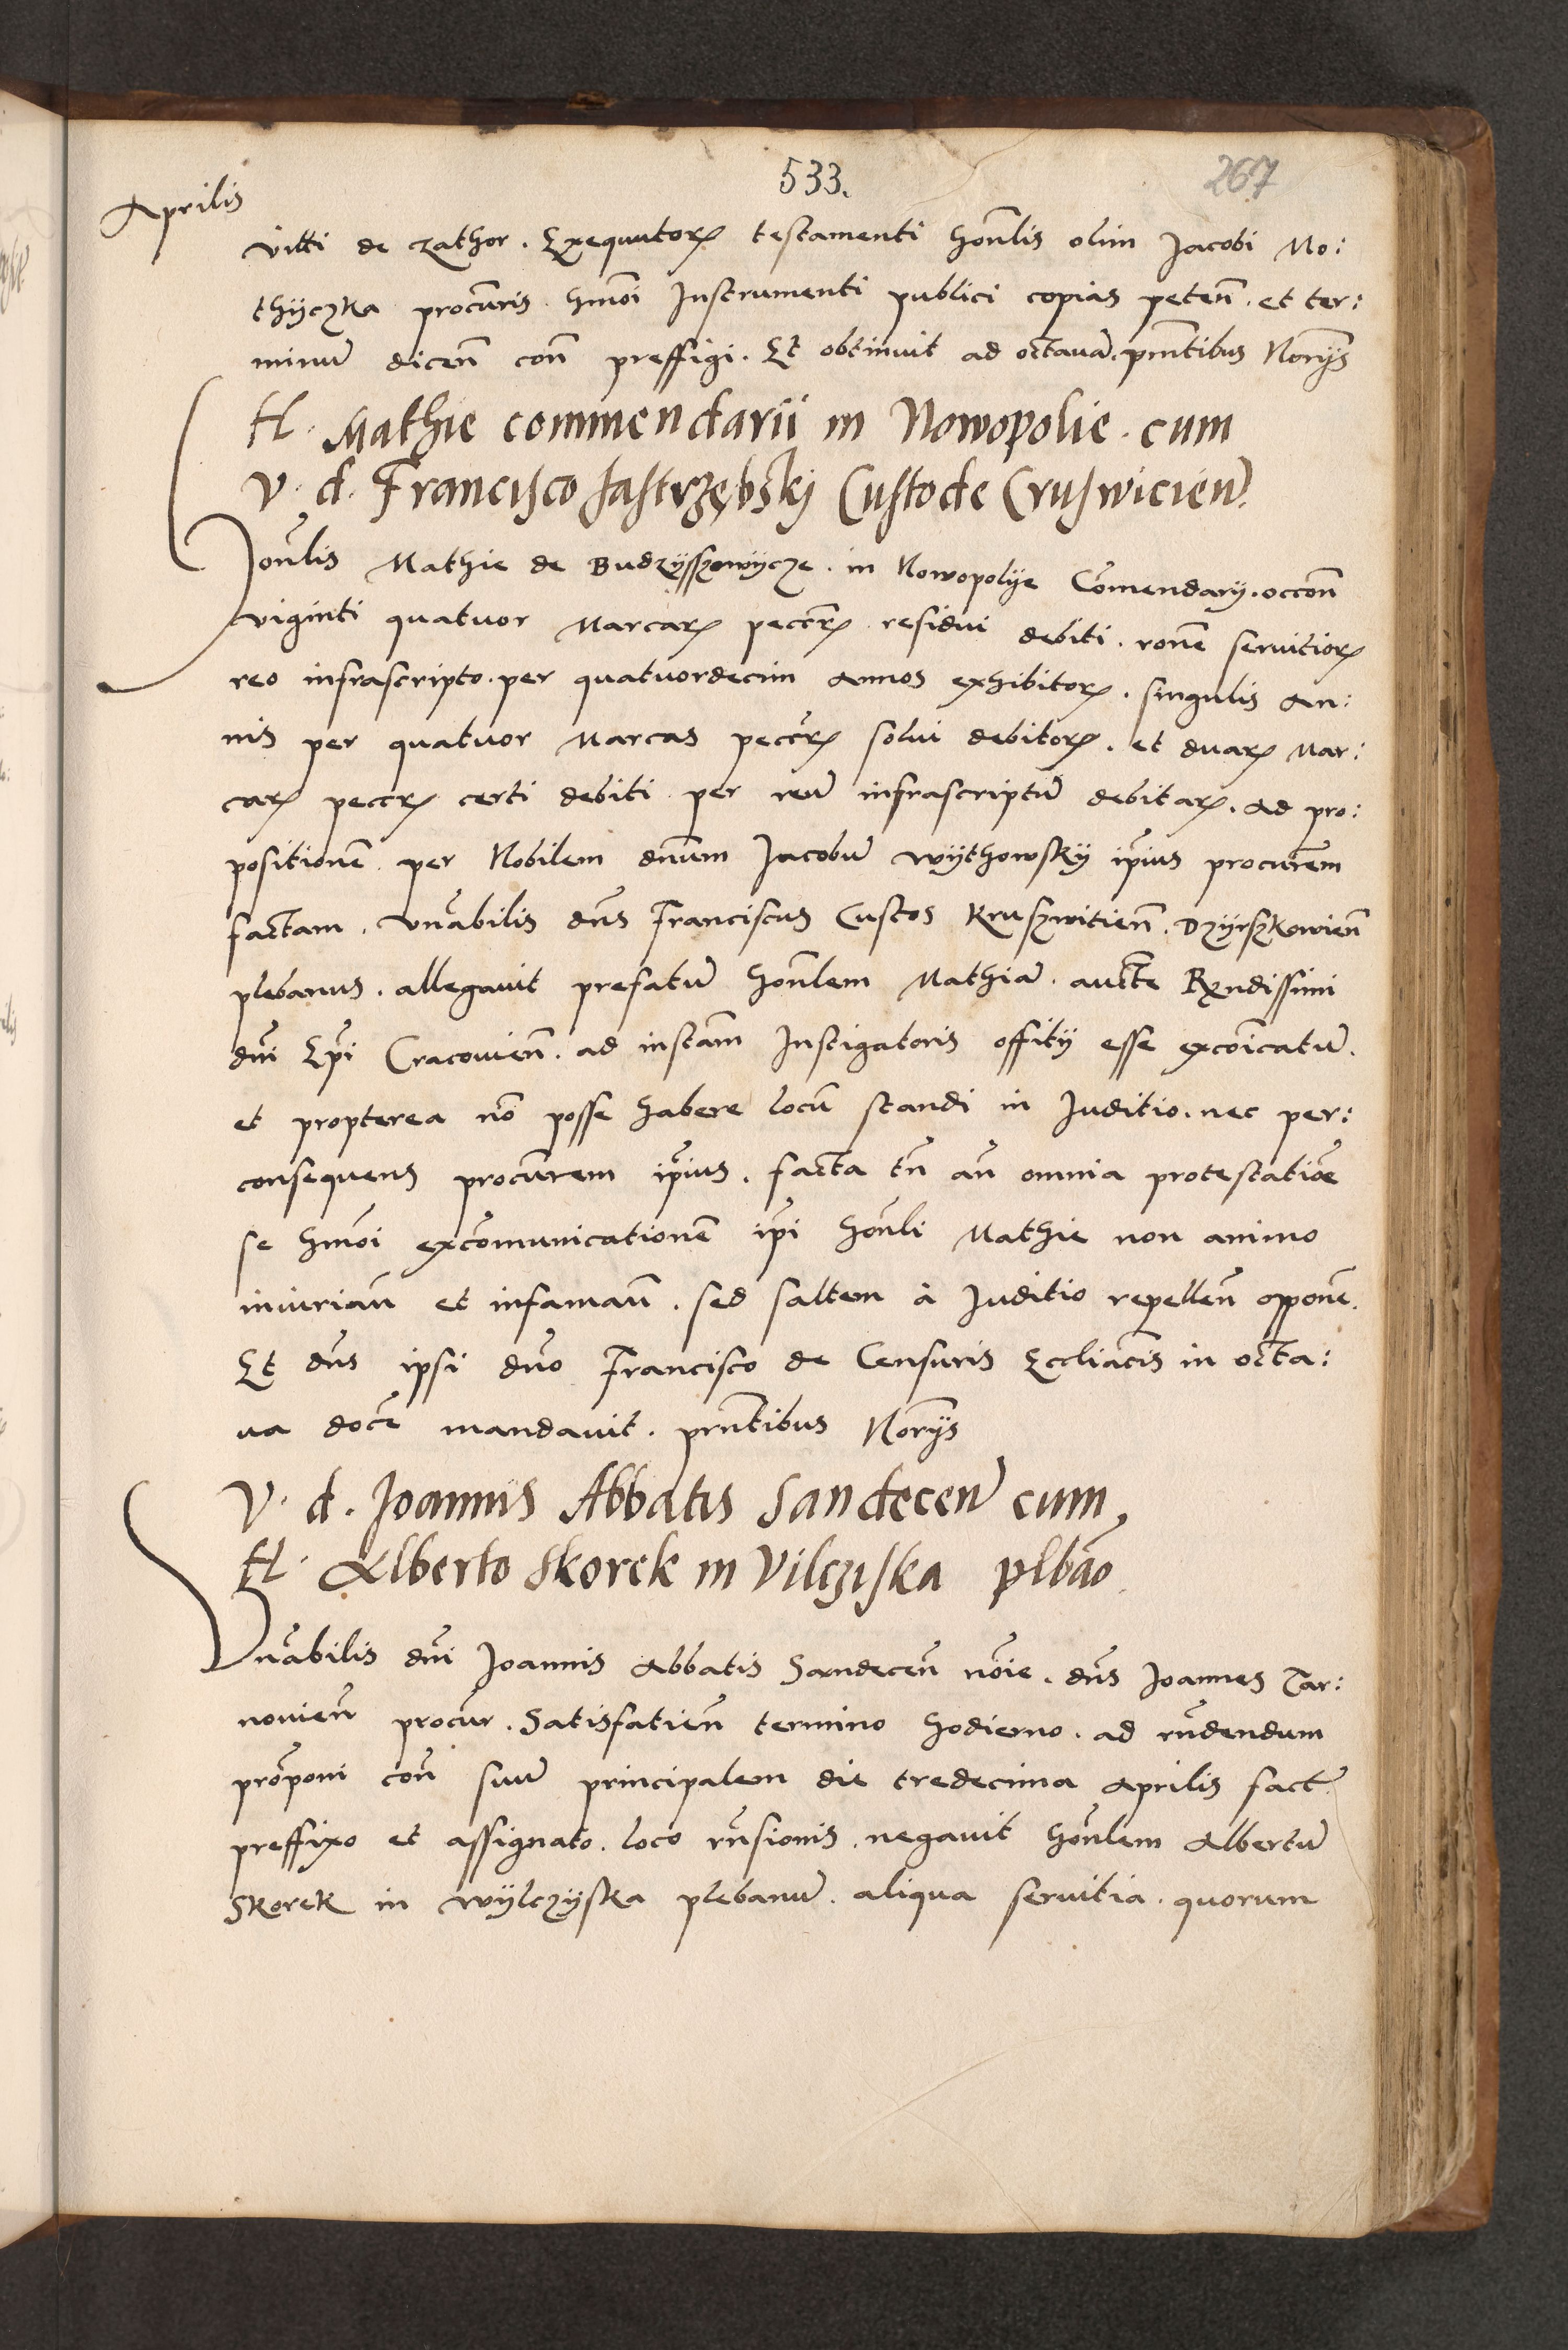 533.
267
Aprilis
vitti de Zathor. Exequutorꝝ testamenti hon̄lis olim Jacobi Mo:
thyczka procūris. hm̄oi Instrumenti publici copias peten̄. et ter:
minū dicen̄ con̄ preffigi. Et obtinuit ad octauā. pn̄tibus Norijs
H. Mathie commendarii in Nowopolie. cum
V. d. Francisco Jastrzębskij Custode Cruswicien̄.
Hon̄lis Mathie de Budzyssowycze. in Nowopolye Com̄endarij. occon̄
viginti quatuor Marcarꝝ peccr̄ꝝ residui debiti. ron̄e seruitiorꝝ
reo infrascripto. per quatuordecim Annos exhibitorꝝ. singulis An:
nis per quatuor Marcas peccr̄ꝝ solui debitorꝝ. et duarꝝ Mar:
carꝝ peccr̄ꝝ certi debiti per reū infrascriptū debitarꝝ. Ad pro:
positionē per Nobilem dn̄um Jacobū Wythowsky ip̄ius procur̄em
factam. Vn̄abilis dn̄s Franciscus Custos Kruszwitien̄. Dzyrszkowien̄
plebanus. allegauit prefatū hon̄lem Mathiā. auct̄e Rx̄ndissimi
dn̄i Ep̄i Cracouien̄. ad instām Instigatoris offitij esse excōicatū.
et propterea nō posse habere locū standi in Juditio. nec per:
consequens procūrem ip̄ius. facta tn̄ an̄ omnia protestatiōe
se hm̄oi excōmunicationē ip̄i hon̄li Mathie non animo
iniurian̄ et infaman̄. sed saltem à Juditio repellen̄ opponē.
Et dn̄s ipsi dn̄o Francisco de Censuris Eccliāctis in octa:
ua docē mandauit. prn̄tibus Norijs
V. d. Joannis Abbatis Sandecen̄ cum,
H. Alberto Skorek in Vilcziska plbāo
Vn̄abilis dn̄i Joannis Abbatis Sandecen̄ nōie. dn̄s Joannes Tar:
nouien̄ procūr. Satisfatien̄ termino hodierno. ad rn̄dendum
prōponi con̄ suū principalem die tredecima Aprilis fact̄.
preffixo et assignato. loco rn̄sionis. negauit hon̄lem Albertū
Skorek in Wylczyska plebanū. aliqua seruitia. quorum